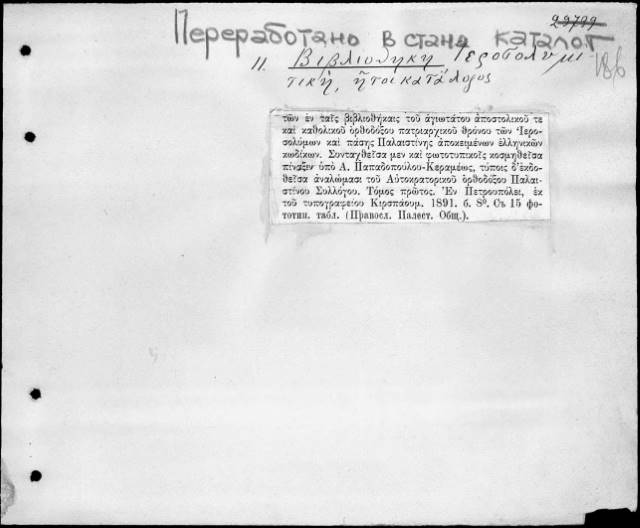 Переработано в станд каталог
11. Βιβλιοθήκη Ἱεροσολυμι
τική, ἤτοι κατάλογος
τῶν ἐν ταῖς βιβλιοθήκαις τοῦ ἁγιωτάτου ἀποστολικοῦ τε
καὶ καθολικοῦ ὀρθοδόξου πατριαρχικοῦ θρόνου τῶν Ἱερο-
σολύμων καὶ πάσης Παλαιστίνης ἀποκειμένων ἑλληνικῶν
κωδίκων. Συνταχθεῖσα μεν καὶ φωτοτυπικοῖς κοσμηθεῖσα
πίναξιν ὑπὸ Α. Παπαδοπούλου-Κεραμέως, τύποις δ'ἐκδο-
θεῖσα ἀναλώμασι τοῦ Αὐτοκρατορικοῦ ὀρθοδόξου Παλαι-
στίνου Συλλόγου. Τόμος πρῶτος. Ἐν Πετρουπόλει, ἐκ
τοῦ τυπογραφείου Κιρσπάουμ. 1891. б. 8º. Съ 15 фо-
тотип. табл. (Правосл. Палест. Общ.).